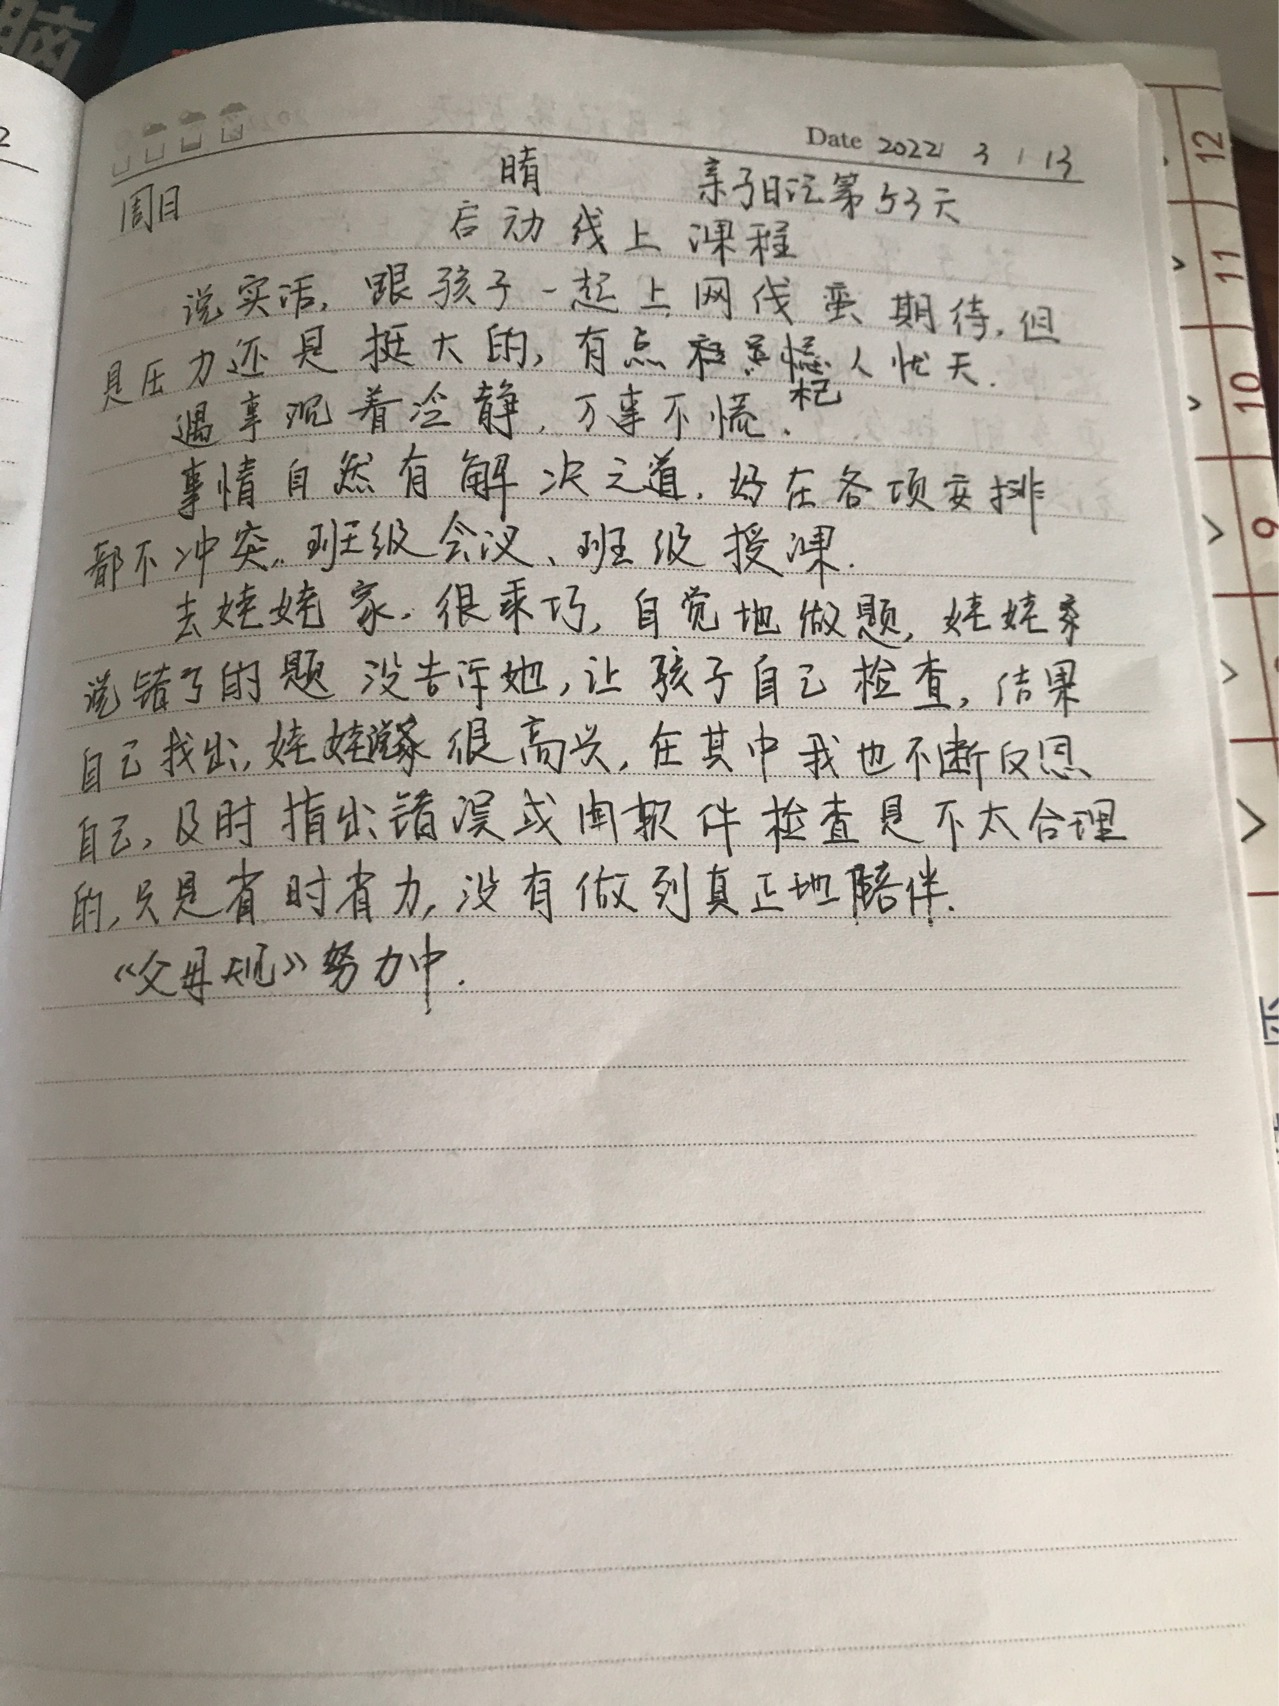 脑
2
Date 2022 / 3 / 13
周日 晴 亲子日记第53天
启动线上课程
说实话,跟孩子一起上网伐蛮期待,但
是压力还是挺大的,有点杞人忧天.
遇事沉着冷静,万事不慌.
事情自然有解决之道.好在各项安排
都不冲突.班级会议、班级授课.
去娃娃家.很乖巧,自觉地做题,娃娃家
说错了的题没告诉她,让孩子自己检查,结果
自己找出,娃娃家很高兴,在其中我也不断反思
自己,及时指出错误或用软件检查是不太合理
的,只是省时省力,没有做到真正地陪伴.
《父母规》努力中.
12
11
10
9